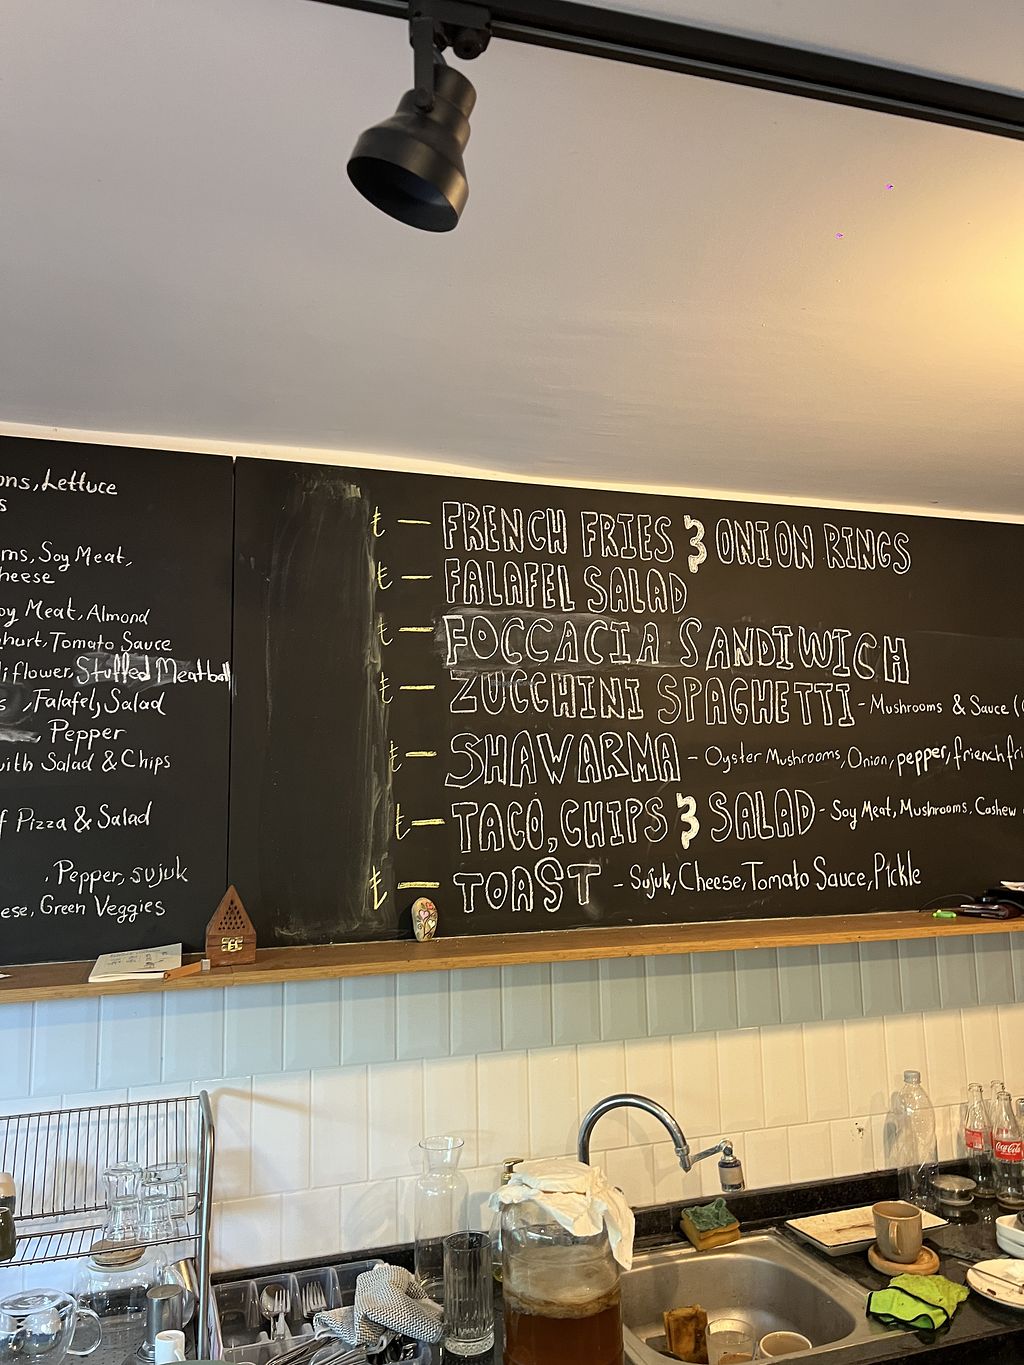 ons, Lettuce
s
ms, Soy Meat,
heese
oy Meat, Almond
hurt, Tomato Sauce
liflower, Stuffed Meatball
s , Falafel, Salad
, Pepper
with Salad & Chips
f Pizza & Salad
, Pepper, sujuk
eese, Green Veggies
₺ — FRENCH FRIES & ONION RINGS
₺ — FALAFEL SALAD
₺ — FOCCACIA SANDIWICH
₺ — ZUCCHINI SPAGHETTI - Mushrooms & Sauce (
₺ — SHAWARMA - Oyster Mushrooms, Onion, pepper, frienchfri
₺ — TACO, CHIPS & SALAD - Soy Meat, Mushrooms, Cashew
₺ — TOAST - Sujuk, Cheese, Tomato Sauce, Pickle
Coca-Cola